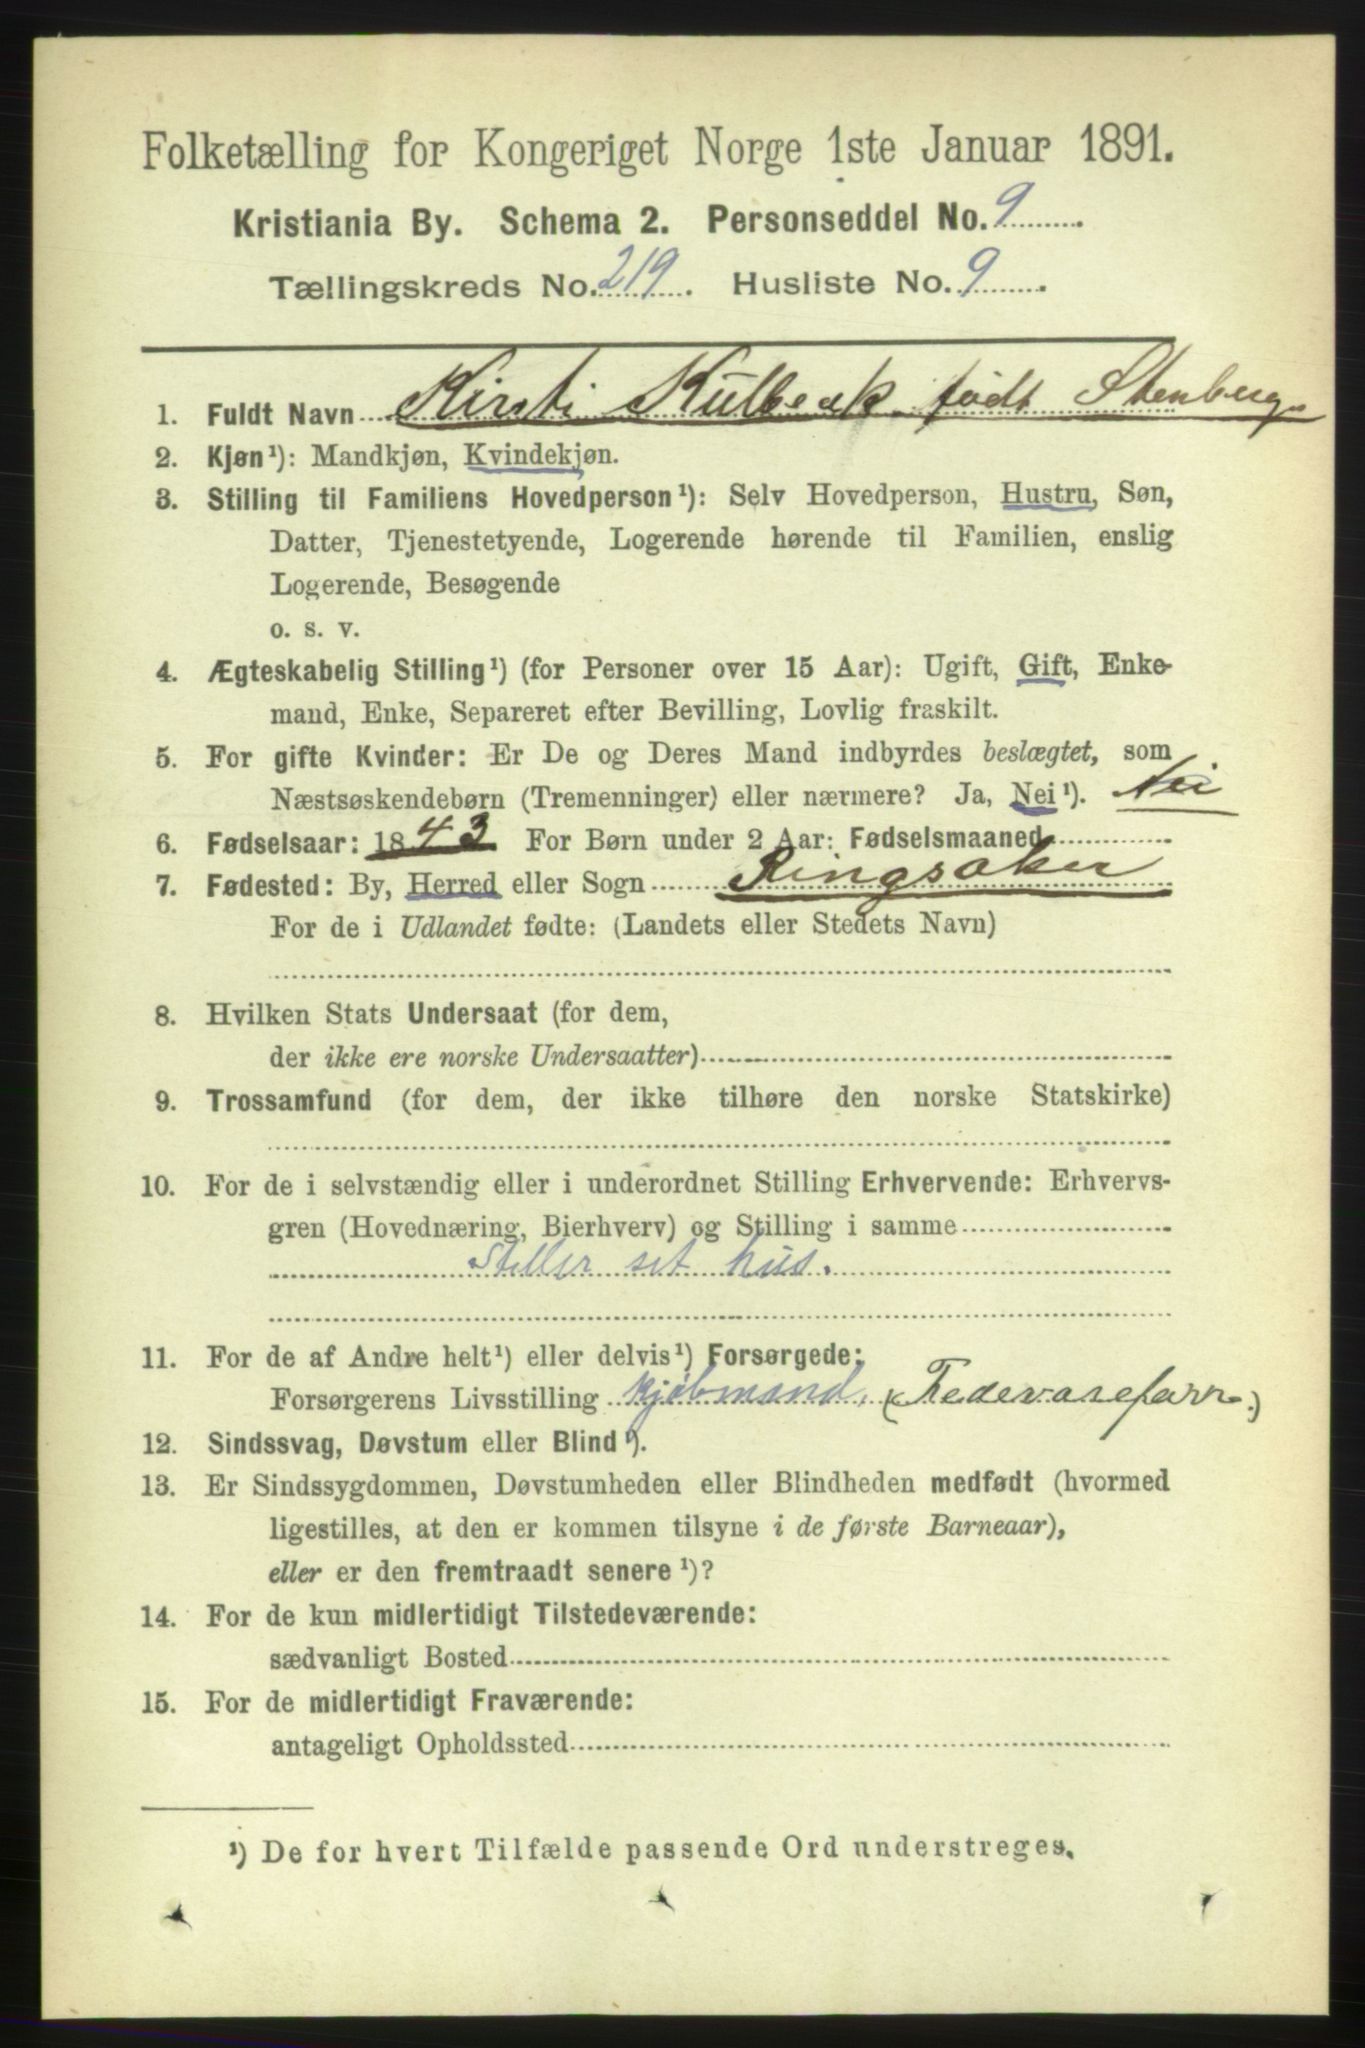 Folketælling for Kongeriget Norge 1ste Januar 1891.
Kristiania By. Schema 2. Personseddel No. 9
Tællingskreds No. 219. Husliste No. 9.
1. Fuldt Navn Kirsti Kulbeck. født Stenberg.
2. Kjøn¹): Mandkjøn, Kvindekjøn.
3. Stilling til Familiens Hovedperson¹): Selv Hovedperson, Hustru, Søn,
Datter, Tjenestetyende, Logerende hørende til Familien, enslig
Logerende, Besøgende
o. s. v.
4. Ægteskabelig Stilling¹) (for Personer over 15 Aar): Ugift, Gift, Enke-
mand, Enke, Separeret efter Bevilling, Lovlig fraskilt.
5. For gifte Kvinder: Er De og Deres Mand indbyrdes beslægtet, som
Næstsøskendebørn (Tremenninger) eller nærmere? Ja, Nei¹). Nei
6. Fødselsaar: 1843 For Børn under 2 Aar: Fødselsmaaned
7. Fødested: By, Herred eller Sogn Ringsaker
For de i Udlandet fødte: (Landets eller Stedets Navn)
8. Hvilken Stats Undersaat (for dem,
der ikke ere norske Undersaatter)
9. Trossamfund (for dem, der ikke tilhøre den norske Statskirke)
10. For de i selvstændig eller i underordnet Stilling Erhvervende: Erhvervs-
gren (Hovednæring, Bierhverv) og Stilling i samme
Steller set hus.
11. For de af Andre helt¹) eller delvis¹) Forsørgede:
Forsørgerens Livsstilling Kjøbmand, (Fedevareforr.)
12. Sindssvag, Døvstum eller Blind¹).
13. Er Sindssygdommen, Døvstumheden eller Blindheden medfødt (hvormed
ligestilles, at den er kommen tilsyne i de første Barneaar),
eller er den fremtraadt senere¹)?
14. For de kun midlertidigt Tilstedeværende:
sædvanligt Bosted
15. For de midlertidigt Fraværende:
antageligt Opholdssted
¹) De for hvert Tilfælde passende Ord understreges.